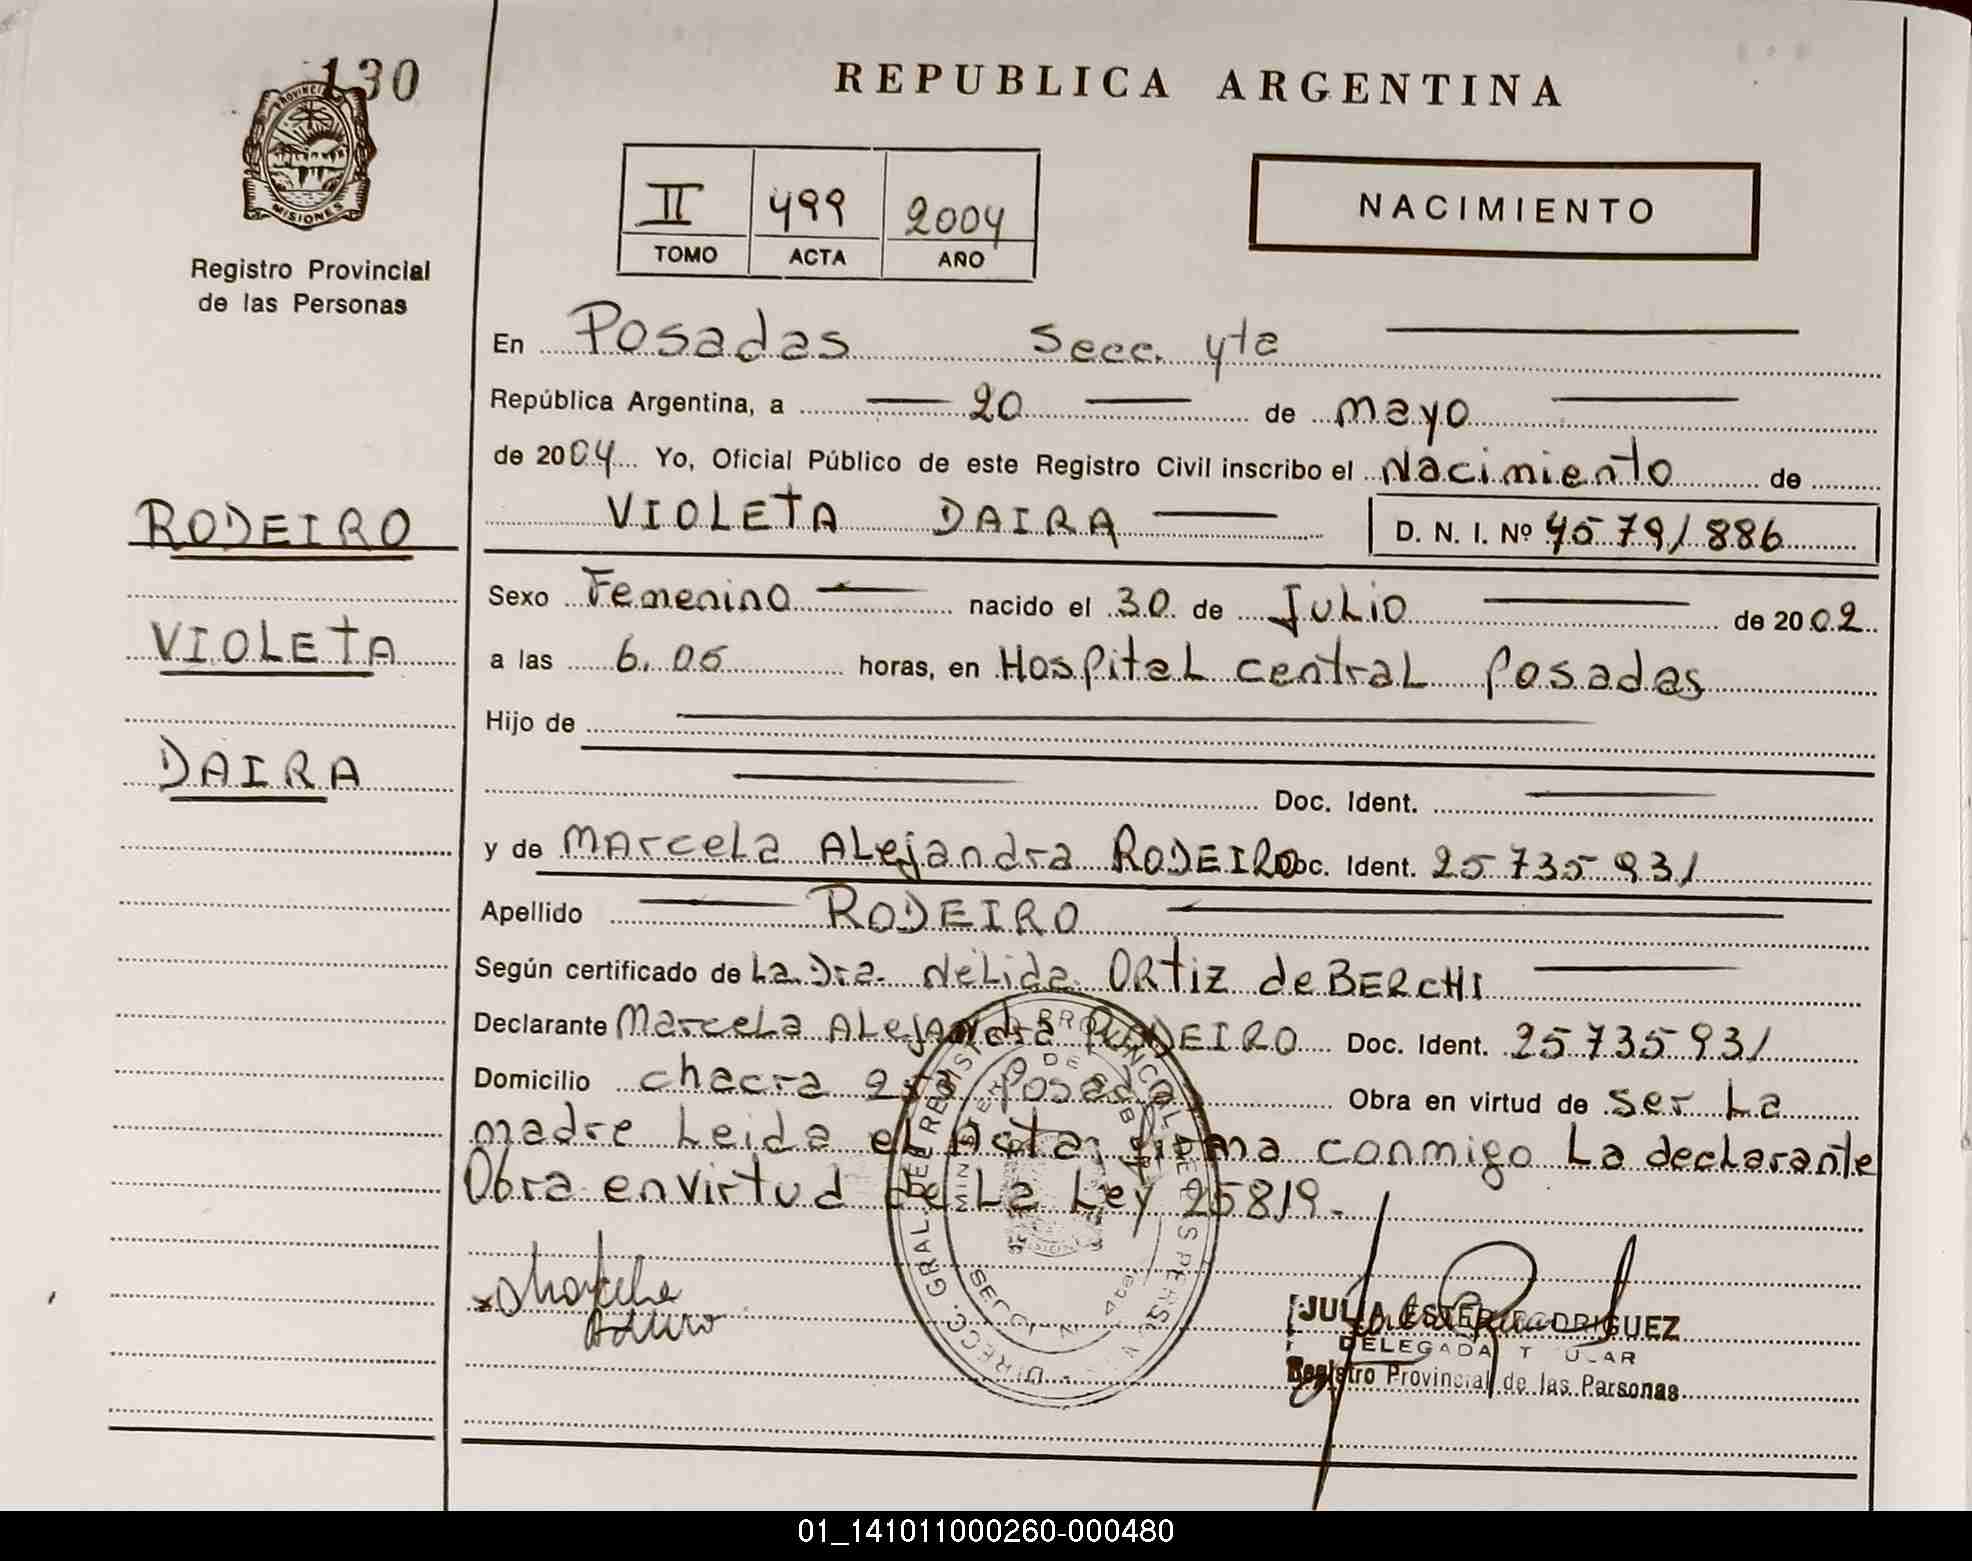 130
REPUBLICA ARGENTINA
PROVINCIA
MISIONES
Registro Provincial
de las Personas
II 499 2004
TOMO ACTA AÑO
NACIMIENTO
En Posadas Secc. 4ta
República Argentina, a 20 de mayo
de 2004 Yo, Oficial Público de este Registro Civil inscribo el Nacimiento de
VIOLETA DAIRA D. N. I. Nº 45791886
RODEIRO
VIOLETA
DAIRA
Sexo Femenino nacido el 30 de Julio de 2002
a las 6.05 horas, en Hospital central Posadas
Hijo de
Doc. Ident.
y de Marcela Alejandra RODEIRO Doc. Ident. 25735931
Apellido RODEIRO
Según certificado de La Dra. Nelida Ortiz de BERCHI
Declarante Marcela Alejandra RODEIRO Doc. Ident. 25735931
Domicilio chacra Posadas Obra en virtud de ser La
madre Leida el Acta, firma conmigo La declarante
Obra en virtud de La Ley 25819.
JULIA ESTER RODRIGUEZ
DELEGADA TITULAR
Registro Provincial de las Personas
01_141011000260-000480